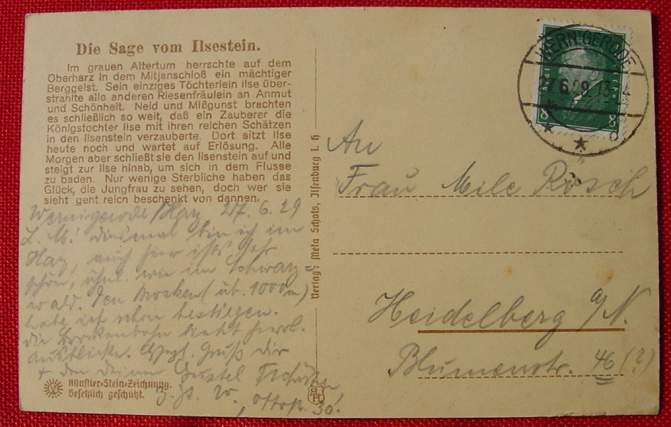 Die Sage vom Ilsestein.
Im grauen Altertum herrschte auf dem
Oberharz in dem Mitjenschloß ein mächtiger
Berggeist. Sein einziges Töchterlein Ilse über-
strahlte alle anderen Riesenfräulein an Anmut
und Schönheit. Neid und Mißgunst brachten
es schließlich so weit, daß ein Zauberer die
Königstochter Ilse mit ihren reichen Schätzen
in den Ilsenstein verzauberte. Dort sitzt Ilse
heute noch und wartet auf Erlösung. Alle
Morgen aber schließt sie den Ilsenstein auf und
steigt zur Ilse hinab, um sich in dem Flusse
zu baden. Nur wenige Sterbliche haben das
Glück, die Jungfrau zu sehen, doch wer sie
sieht geht reich beschenkt von dannen.
Wernigerode Harz 27.6.29
L. M! diesmal bin ich im
Harz auch hier ists sehr
schön, ähnl. wie im Schwarz=
wald. Den Brocken (üb. 1000 m)
habe ich schon bestiegen.
die Brockenbahn bietet herrl.
Ausblicke. Gruß dir
+ den deinen Gustel
Künstler-Stein-Zeichnung.
Gesetzlich geschützt.
Verlag: Meta Schots, Ilsenburg i. H
WERNIGERODE
8
8
An
Frau Mile Rösch
Heidelberg a/N.
Blumenstr. 46 (?)